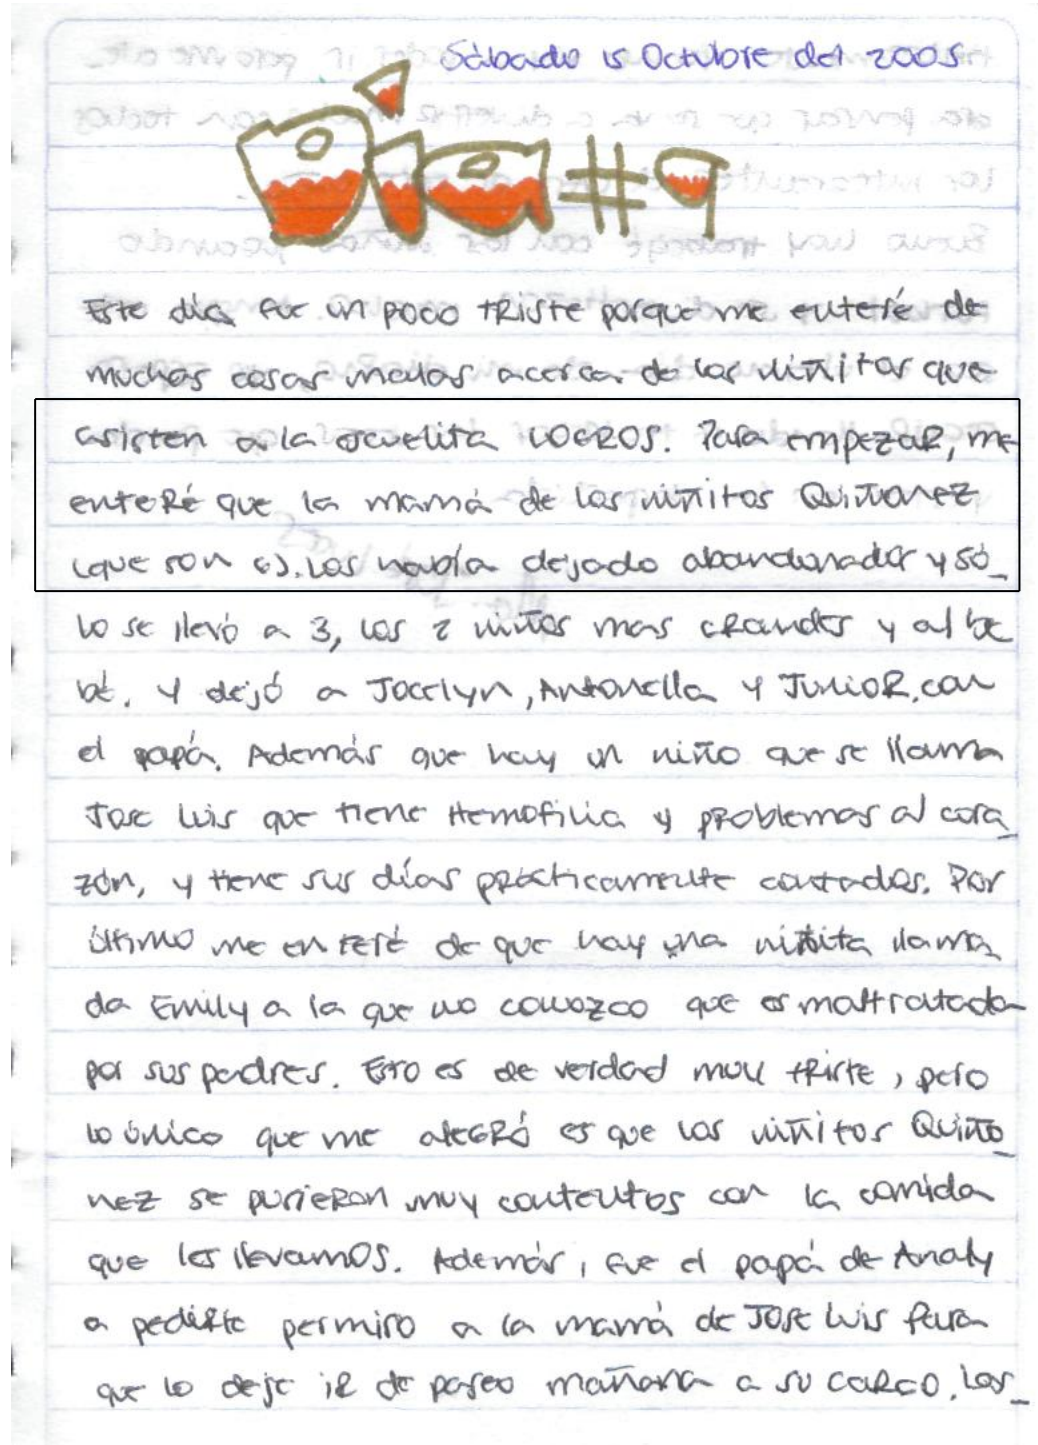 Sábado 15 Octubre del 2005
Dia #9
Este día fue un poco triste porque me enteré de
muchas cosas malas acerca de los niñitos que
asisten a la escuelita LOGROS. Para empezar, me
enteré que la mamá de los niñitos Quiñonez
(que son 6). Los había dejado abandonados y só_
lo se llevó a 3, los 2 niños mas grandes y al be
bé. Y dejó a Jocelyn, Antonella y Junior, con
el papá. Además que hay un niño que se llama
Jose Luis que tiene Hemofilia y problemas al cora_
zón, y tiene sus días prácticamente contados. Por
último me enteré de que hay una niñita llama_
da Emily a la que no conozco que es maltratada
por sus padres. Esto es de verdad muy triste, pero
lo único que me alegró es que los niñitos Quiño_
nez se pusieron muy contentos con la comida
que les llevamos. Además, fue el papá de Analy
a pedirle permiso a la mamá de Jose Luis para
que lo deje ir de paseo mañana a su cargo. Los_